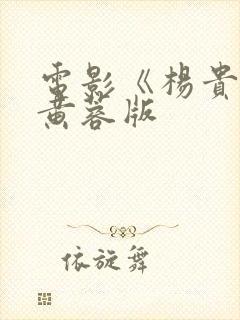 電影《楊貴
黄蓉版
依旋舞